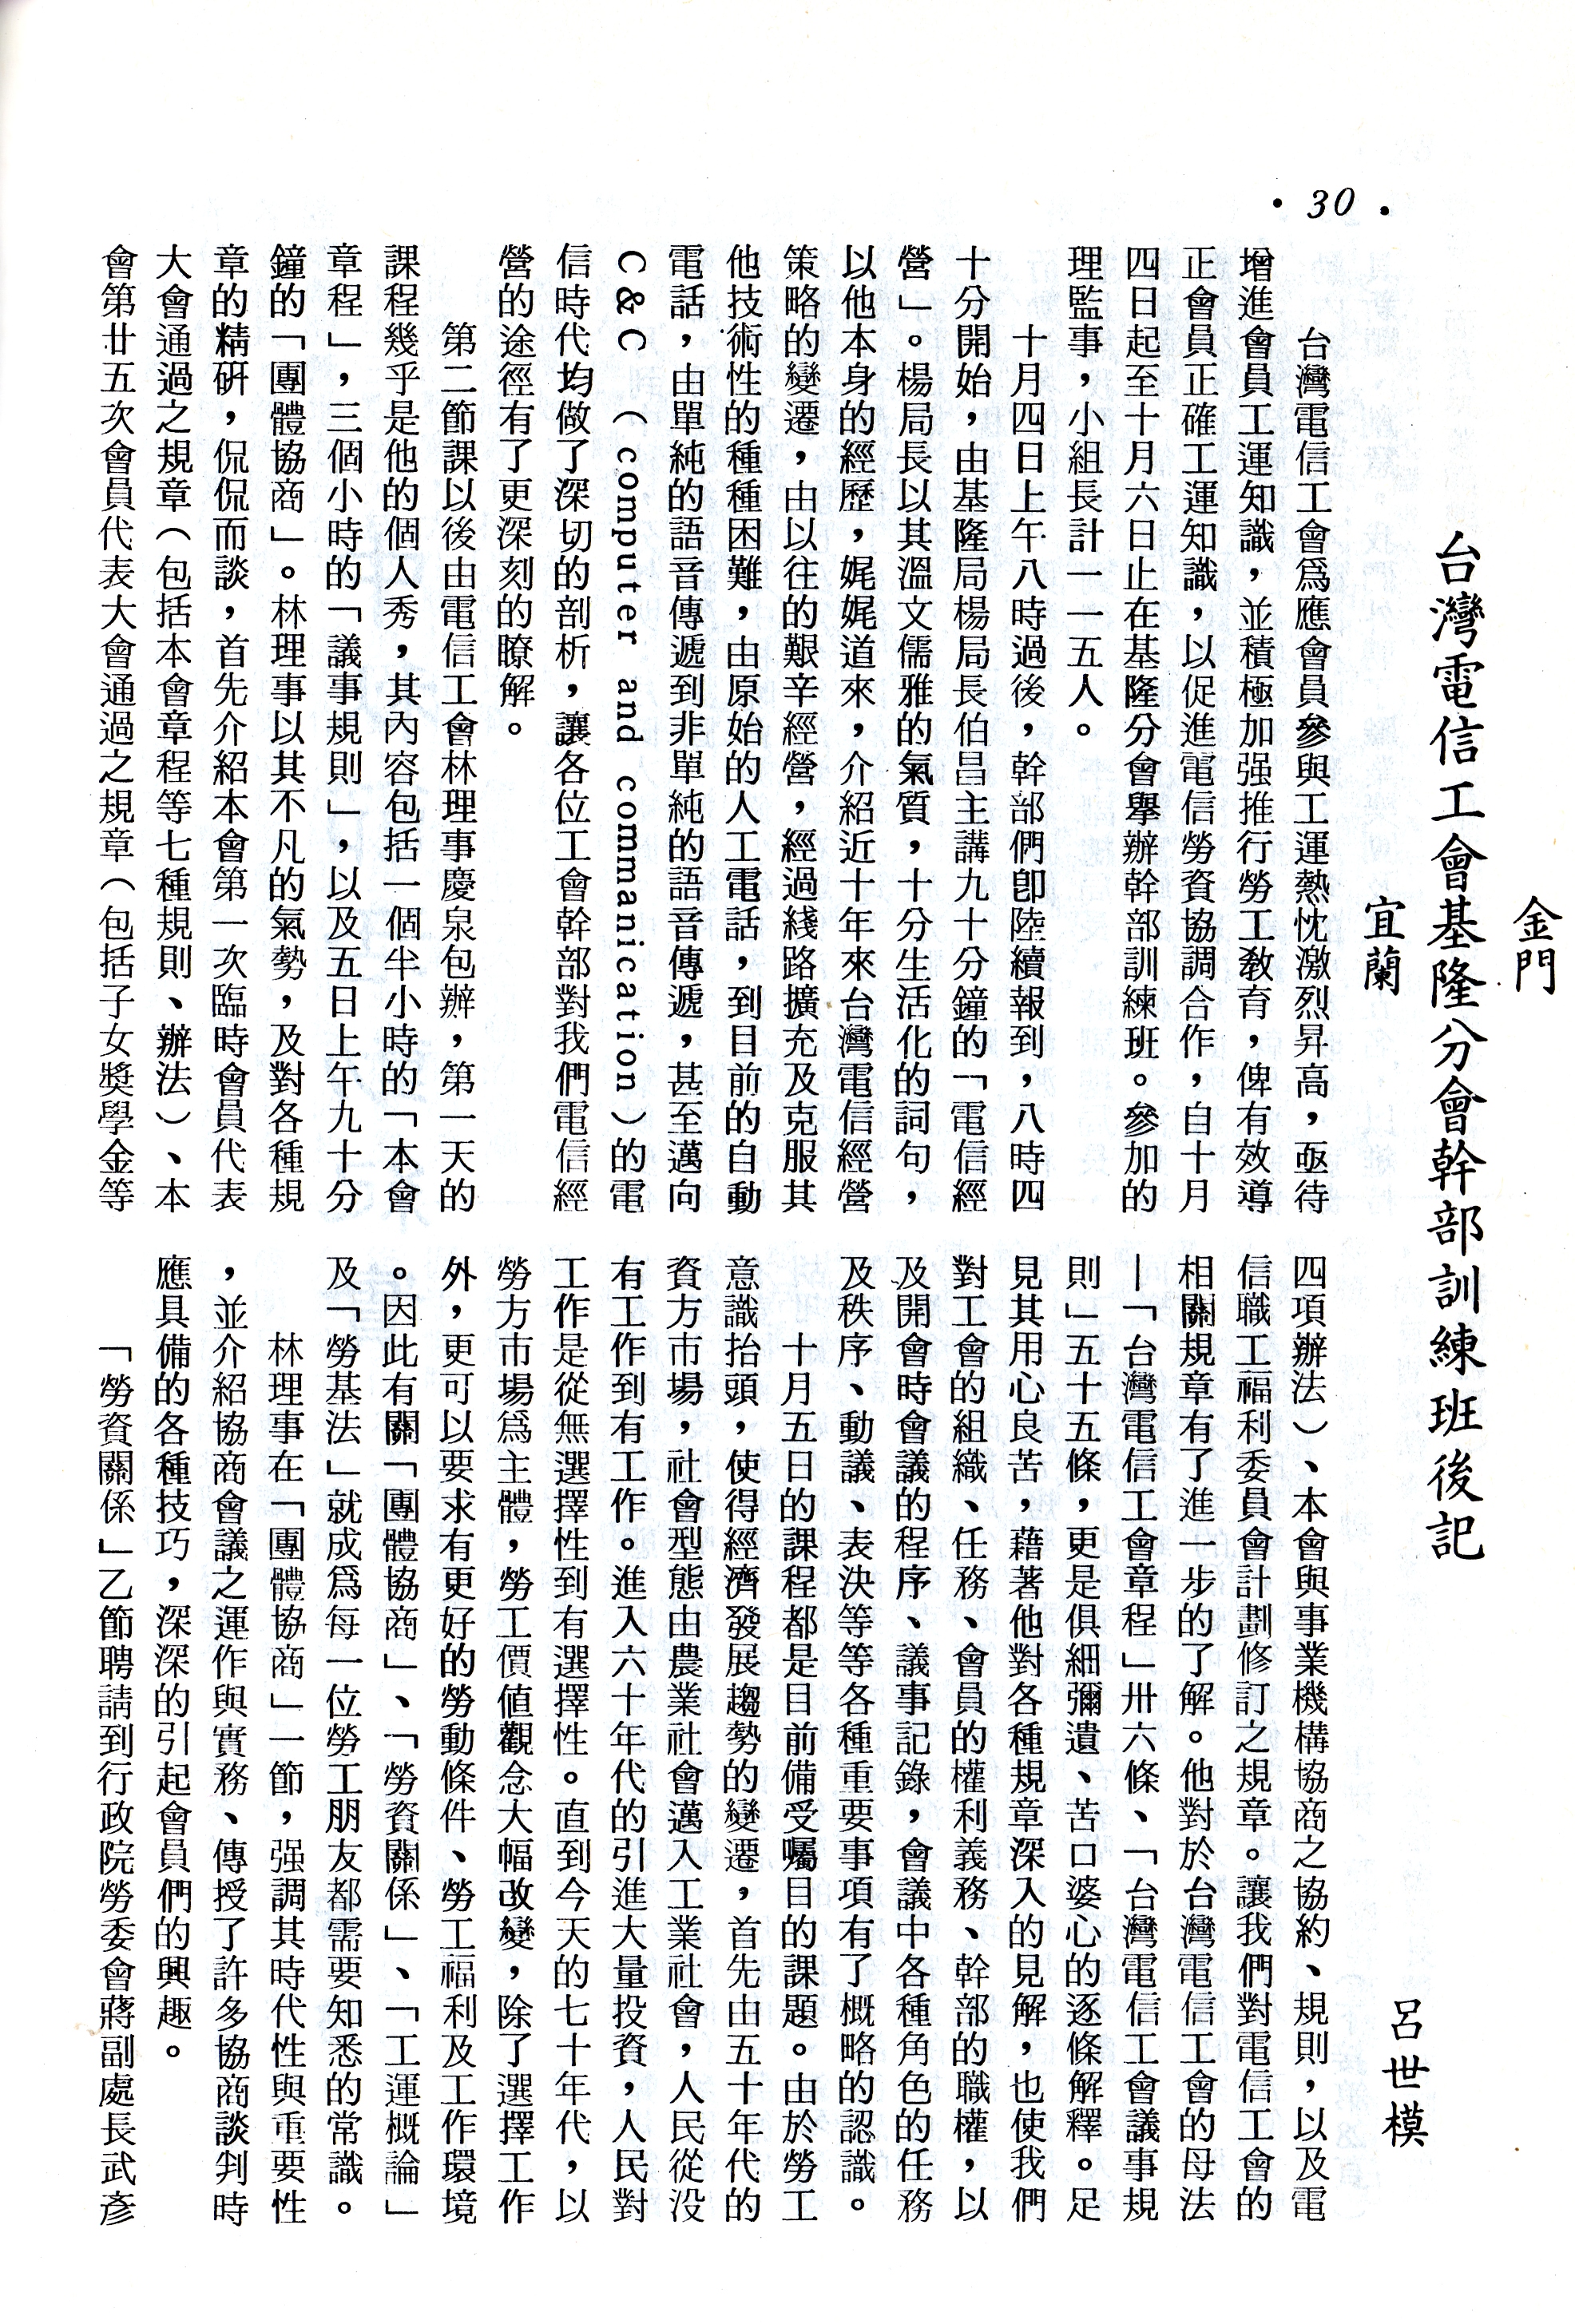 ·30·
台灣電信工會基隆分會幹部訓練班後記
金門
宜蘭
呂世模
台灣電信工會爲應會員參與工運熱忱激烈昇高，亟待
增進會員工運知識，並積極加强推行勞工教育，俾有效導
正會員正確工運知識，以促進電信勞資協調合作，自十月
四日起至十月六日止在基隆分會舉辦幹部訓練班。參加的
理監事，小組長計一一五人。
十月四日上午八時過後，幹部們卽陸續報到，八時四
十分開始，由基隆局楊局長伯昌主講九十分鐘的「電信經
營」。楊局長以其溫文儒雅的氣質，十分生活化的詞句，
以他本身的經歷，娓娓道來，介紹近十年來台灣電信經營
策略的變遷，由以往的艱辛經營，經過綫路擴充及克服其
他技術性的種種困難，由原始的人工電話，到目前的自動
電話，由單純的語音傳遞到非單純的語音傳遞，甚至邁向
C&C（computer and commanication）的電
信時代均做了深切的剖析，讓各位工會幹部對我們電信經
營的途徑有了更深刻的瞭解。
第二節課以後由電信工會林理事慶泉包辦，第一天的
課程幾乎是他的個人秀，其內容包括一個半小時的「本會
章程」，三個小時的「議事規則」，以及五日上午九十分
鐘的「團體協商」。林理事以其不凡的氣勢，及對各種規
章的精硏，侃侃而談，首先介紹本會第一次臨時會員代表
大會通過之規章（包括本會章程等七種規則、辦法）、本
會第廿五次會員代表大會通過之規章（包括子女獎學金等
四項辦法）、本會與事業機構協商之協約、規則，以及電
信職工福利委員會計劃修訂之規章。讓我們對電信工會的
相關規章有了進一步的了解。他對於台灣電信工會的母法
—「台灣電信工會章程」卅六條、「台灣電信工會議事規
則」五十五條，更是俱細彌遺、苦口婆心的逐條解釋。足
見其用心良苦，藉著他對各種規章深入的見解，也使我們
對工會的組織、任務、會員的權利義務、幹部的職權，以
及開會時會議的程序、議事記錄，會議中各種角色的任務
及秩序、動議、表決等等各種重要事項有了概略的認識。
十月五日的課程都是目前備受囑目的課題。由於勞工
意識抬頭，使得經濟發展趨勢的變遷，首先由五十年代的
資方市場，社會型態由農業社會邁入工業社會，人民從没
有工作到有工作。進入六十年代的引進大量投資，人民對
工作是從無選擇性到有選擇性。直到今天的七十年代，以
勞方市場爲主體，勞工價值觀念大幅改變，除了選擇工作
外，更可以要求有更好的勞動條件、勞工福利及工作環境
。因此有關「團體協商」、「勞資關係」、「工運概論」
及「勞基法」就成爲每一位勞工朋友都需要知悉的常識。
林理事在「團體協商」一節，强調其時代性與重要性
，並介紹協商會議之運作與實務、傳授了許多協商談判時
應具備的各種技巧，深深的引起會員們的興趣。
「勞資關係」乙節聘請到行政院勞委會蔣副處長武彥